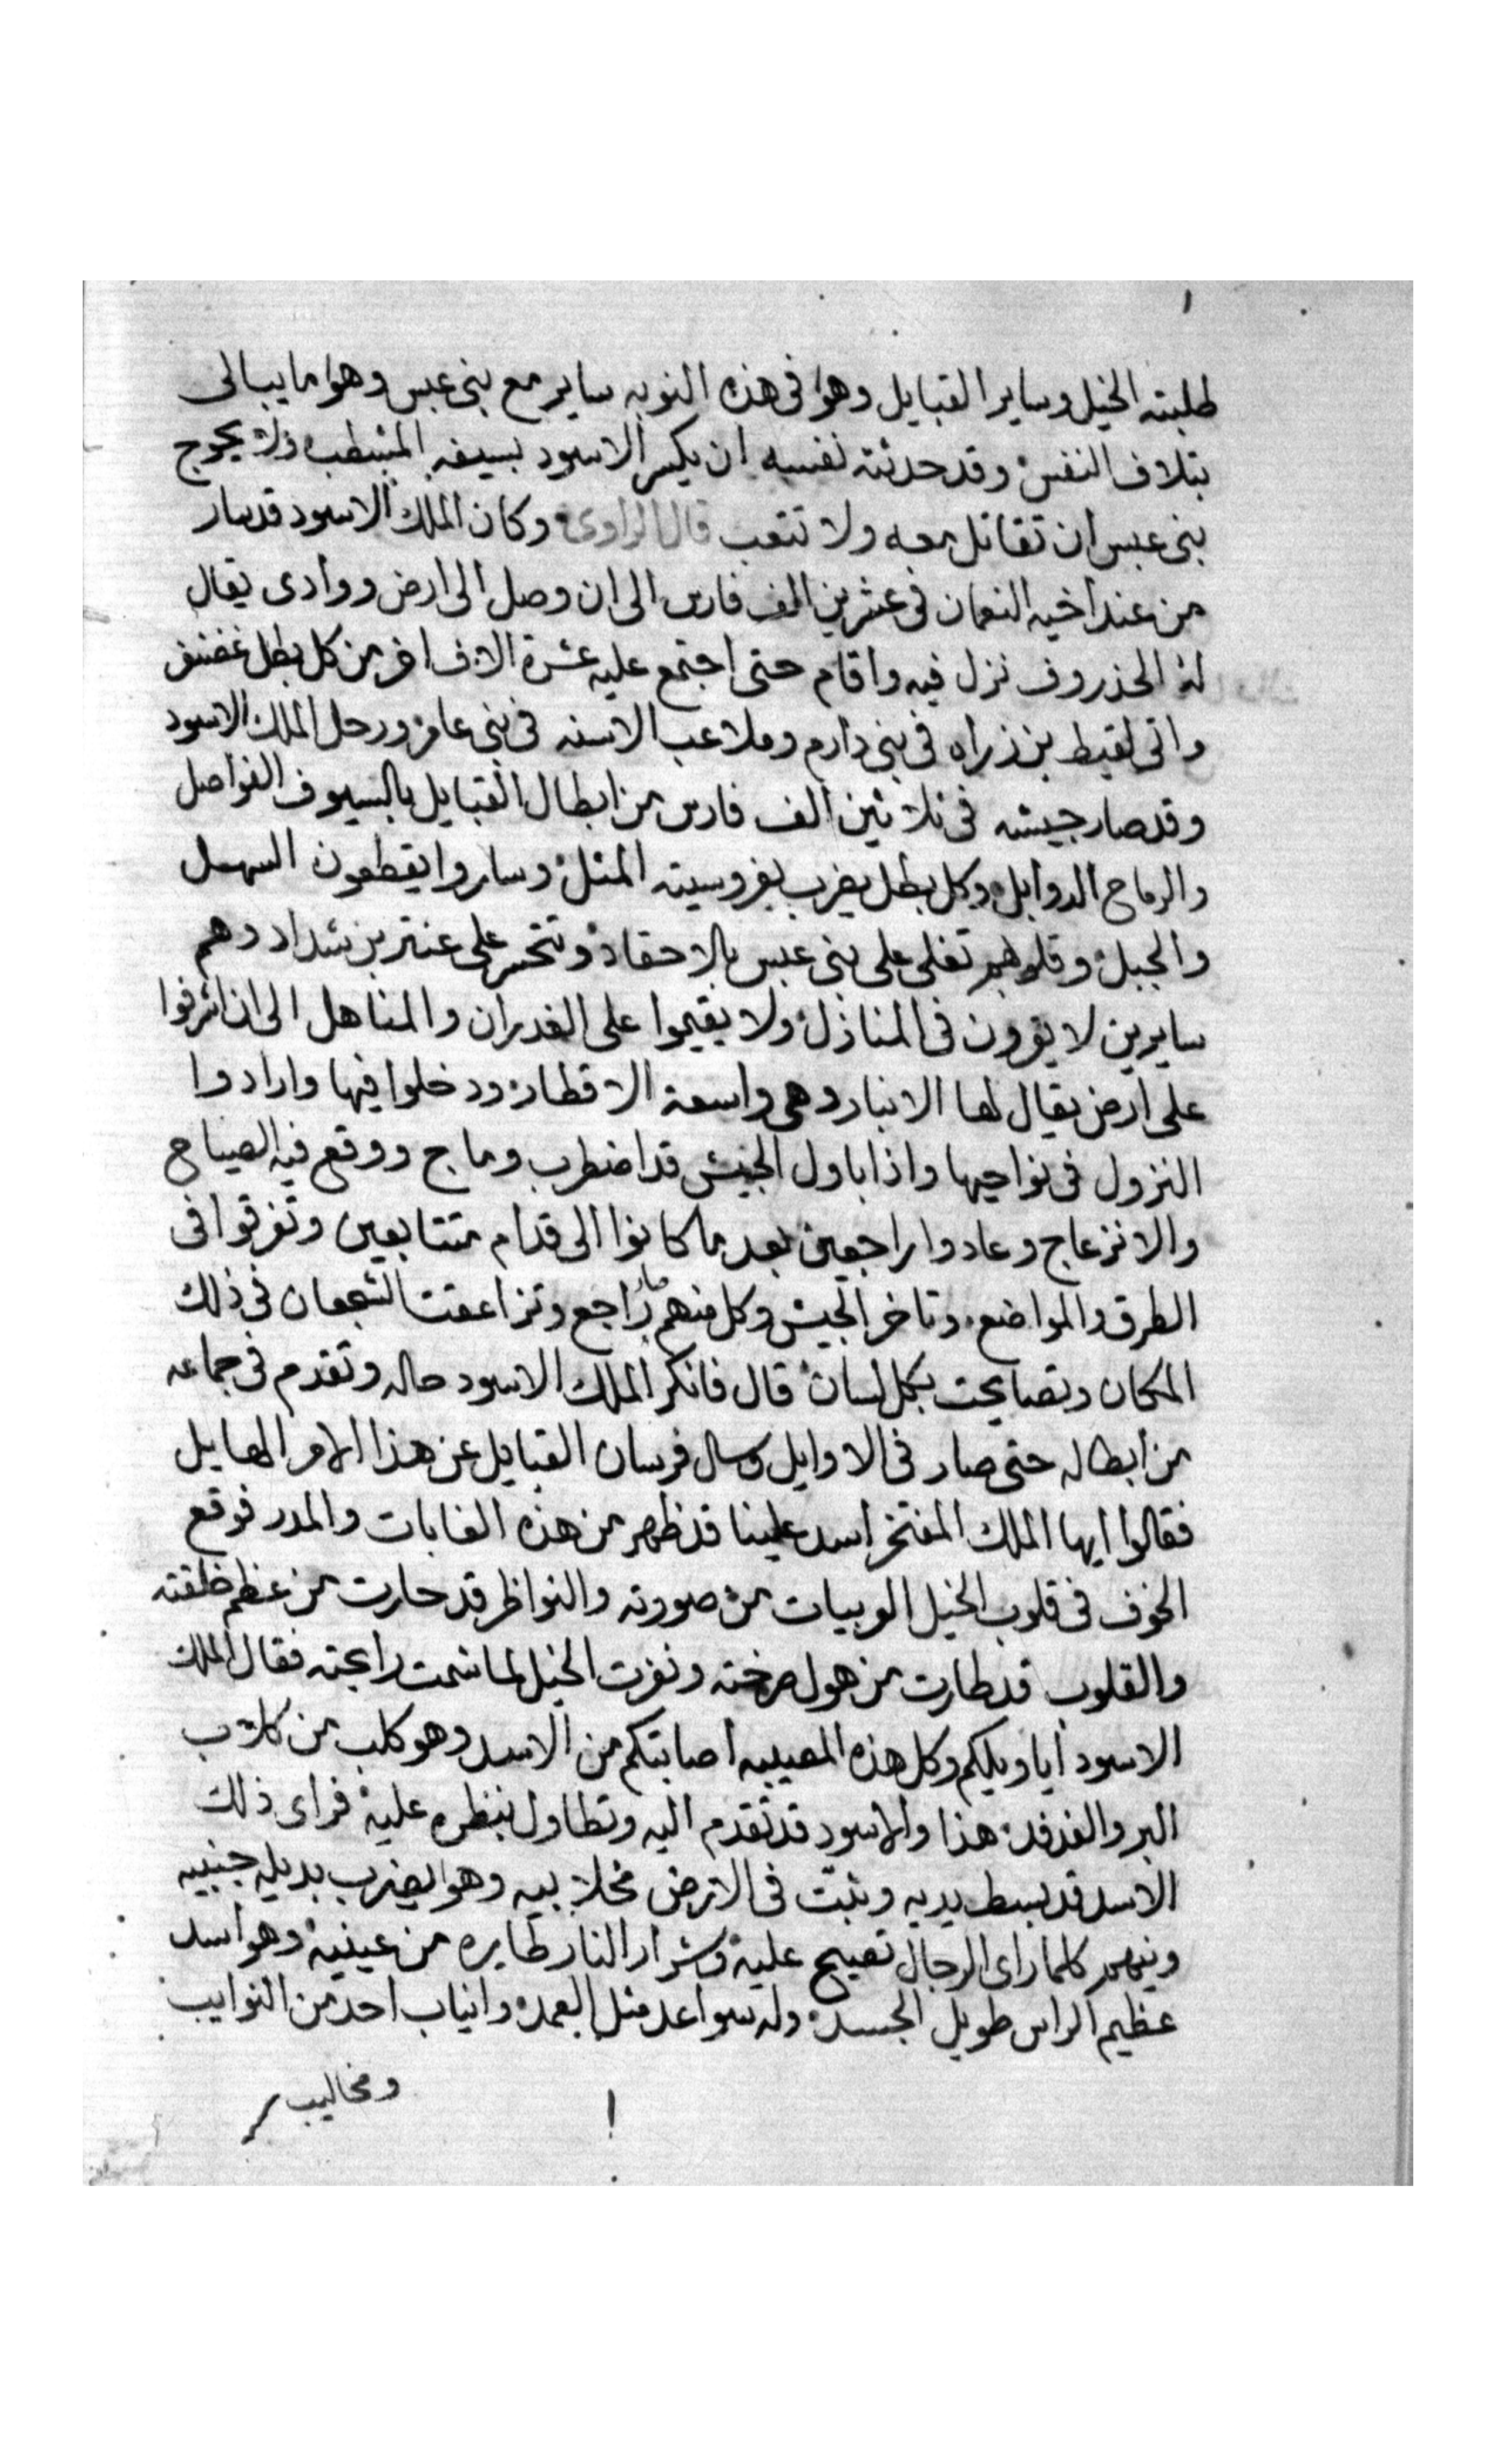 طلبته الخيل وساير القبايل وهو فى هذه النوبه ساير مع بنى عبس وهو ما يبالى
بتلاف النفس وقد حدثته نفسه ان يكسر الاسود بسيفه المشطب ولا يحوج
بنى عبس ان تقاتل معه ولا تتعب قال الراوى وكان الملك الاسود قد سار
من عند اخيه النعمان فى عشرين الف فارس الى ان وصل الى ارض ووادى يقال
له الحذروف نزل فيه واقام حتى اجتمع عليه عشرة الاف اخر من كل بطل غضنفر
واتى لقيط بن زراه فى بنى دارم وملاعب الاسنه فى بنى عامر ورحل الملك الاسود
وقد صار جيشه فى ثلاثين الف فارس من ابطال القبايل بالسيوف الفواصل
والرماح الدوابل وكل بطل يضرب بفروسيته المثل وساروا يقطعون السهل
والجبل وقلوبهم تغلى على بنى عبس بالاحقاد وتتحسر على عنتر بن شداد وهم
سايرين لا يقرون فى المنازل ولا يقيموا على الغدران والمناهل الى ان اشرفوا
على ارض يقال لها الانبار وهى واسعة الاقطار ودخلوا فيها وارادوا
النزول فى نواحيها واذا باول الجيش قد اضطرب وماج ووقع فيه الصياح
والانزعاج وعادوا راجعين بعد ما كانوا الى قدام متتابعين وتفرقوا فى
الطرق والمواضع وتاخر الجيش وكل منهم صار راجع وتزاعقت الشجعان فى ذلك
المكان وتصايحت بكل لسان قال فانكر الملك الاسود حاله وتقدم فى جماعه
من ابطاله حتى صار فى الاوايل وسال فرسان القبايل عن هذا الامر الهايل
فقالوا ايها الملك المفتخر اسد علينا قد ظهر من هذه الغابات والمدر فوقع
الخوف فى قلوب الخيل العربيات من صورته والنواظر قد حارت من عظم خلقته
والقلوب قد طارت من هول صرخته ونفرت الخيل لما شمت رايحته فقال الملك
الاسود ايا ويلكم وكل هذه المصيبه اصابتكم من الاسد وهو كلب من كلاب
البر والفدفد هذا والاسود قد تقدم اليه وتطاول بنظره عليه فراى ذلك
الاسد قد بسط يديه وثبت فى الارض مخلابيه وهو يضرب بديله جنبيه
وينهمر كلما راى الرجال تصيح عليه وشرار النار طايره من عينيه وهو اسد
عظيم الراس طويل الجسد وله سواعد مثل العمد وانياب احد من النوايب
ومخاليب